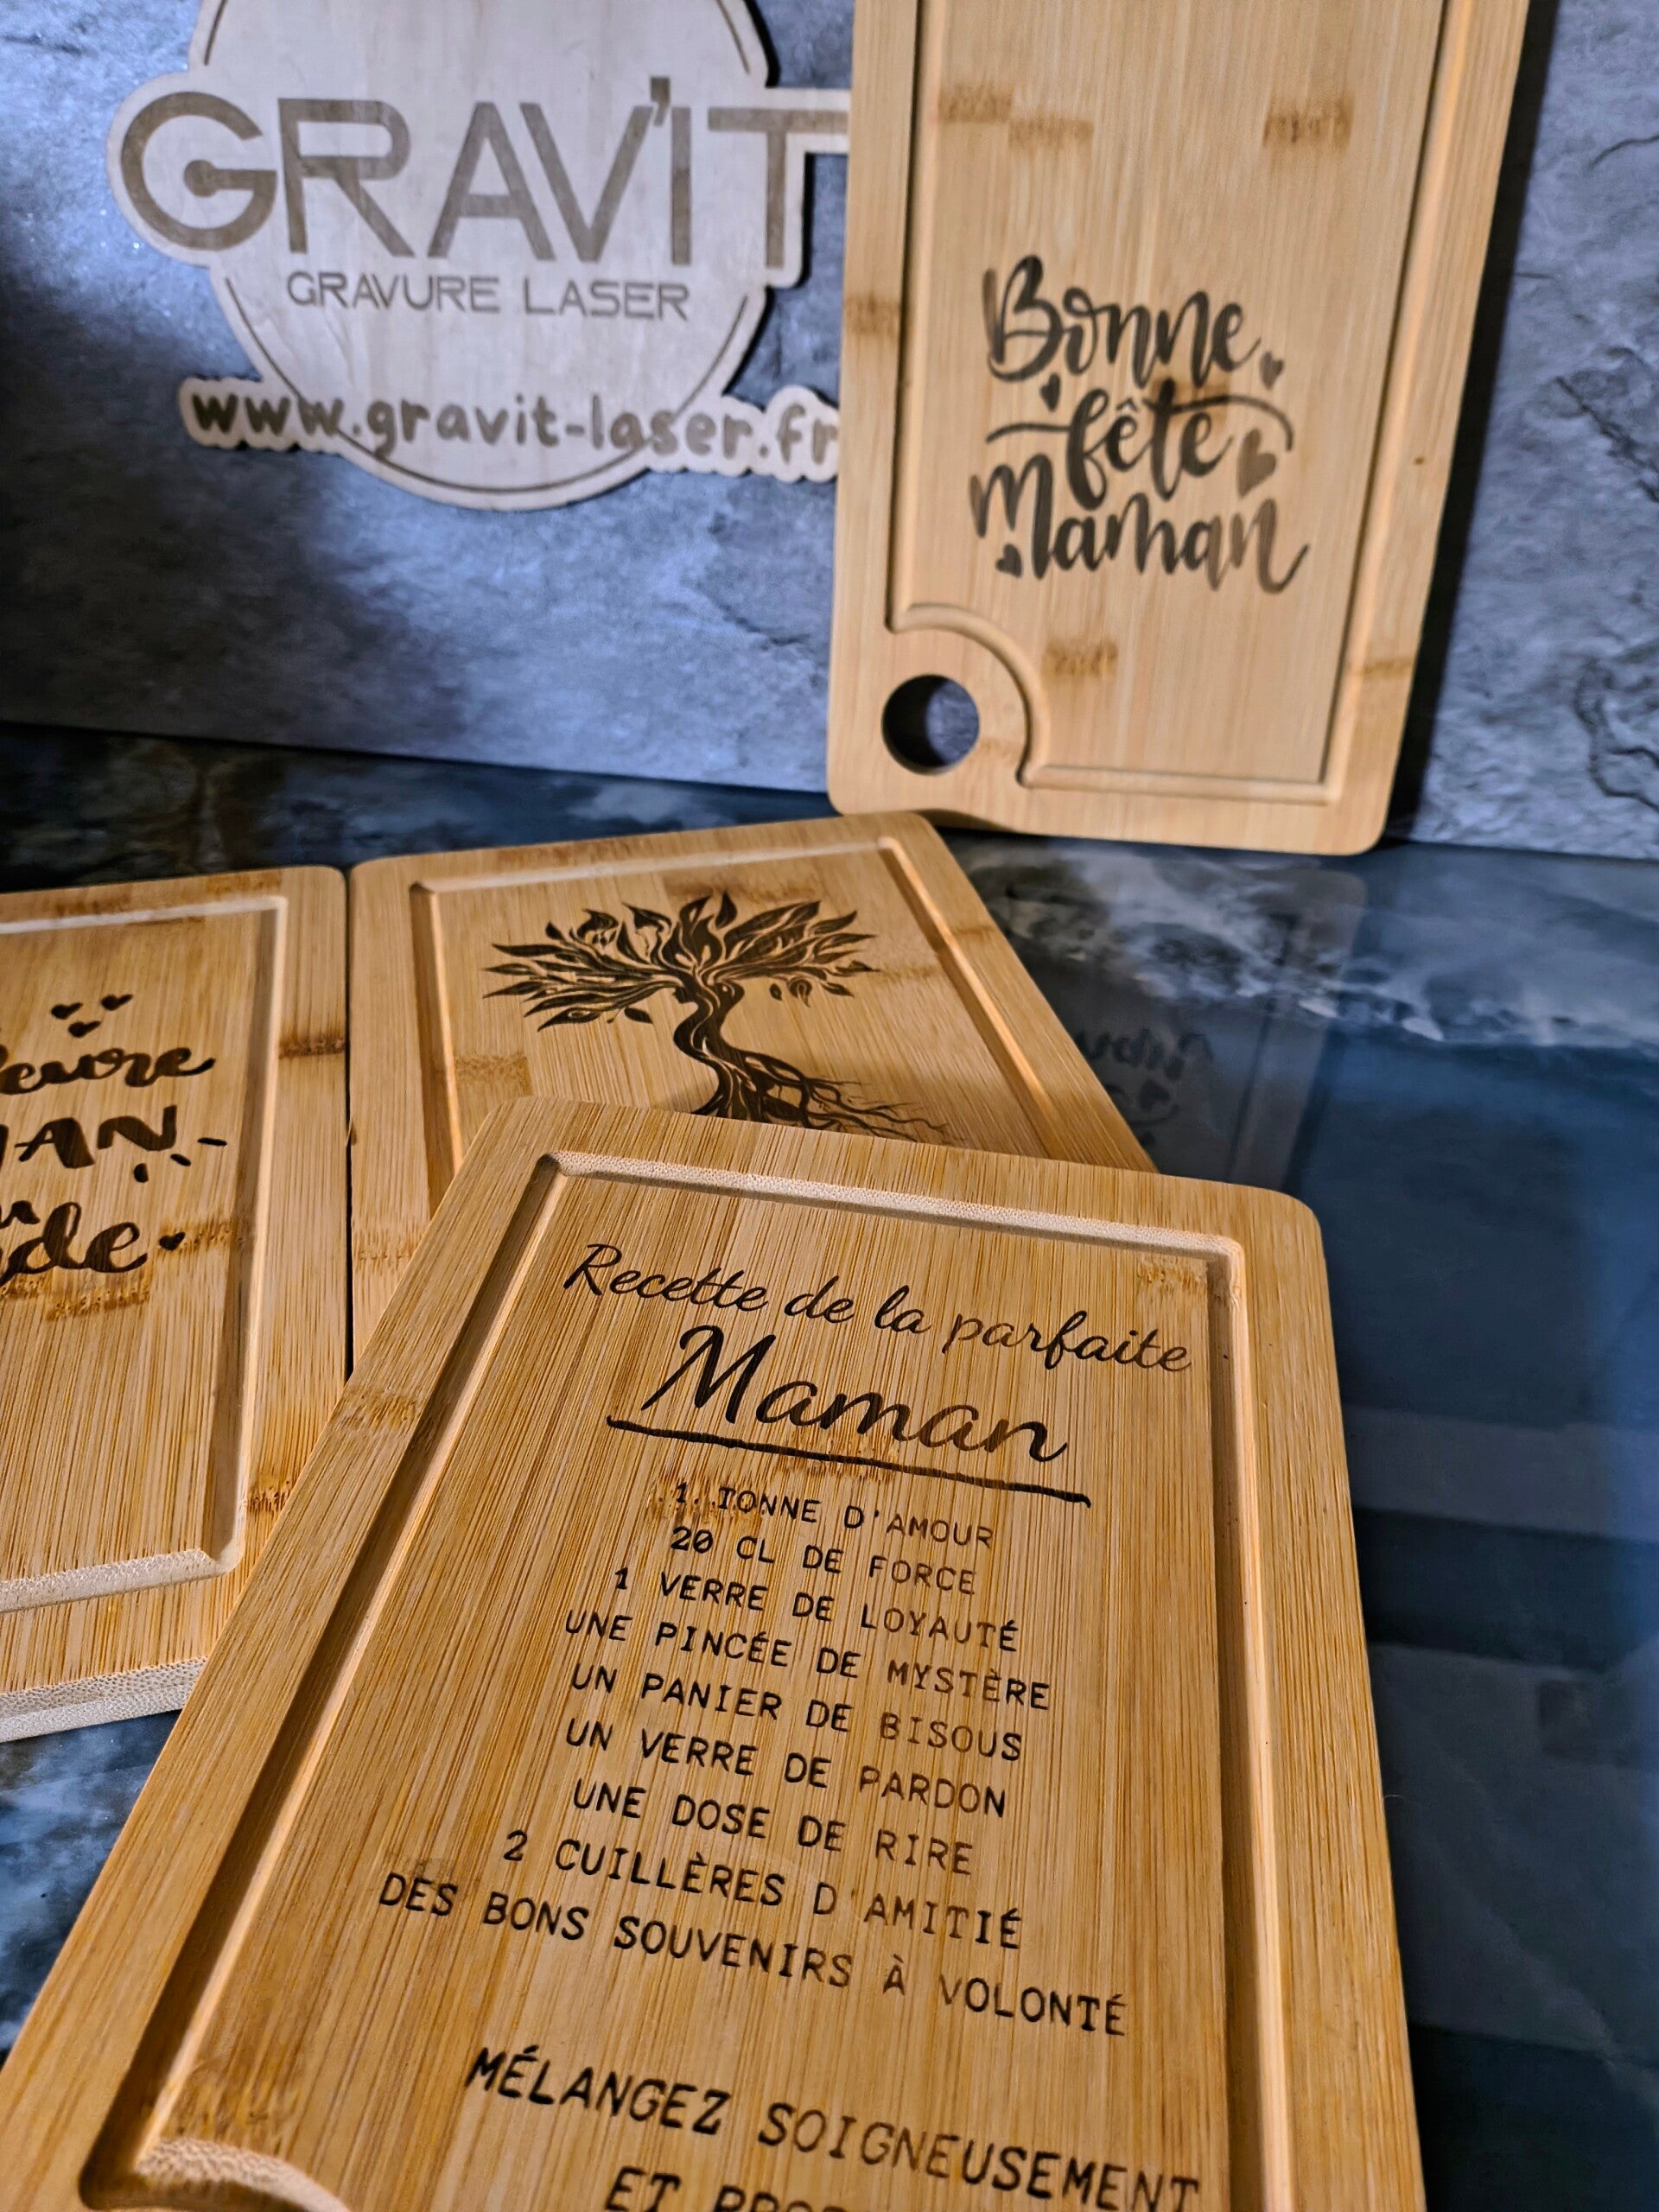 GRAV'IT
GRAVURE LASER
www.gravit-laser.fr
Bonne
fête
Maman
Recette de la parfaite
Maman
1 TONNE D'AMOUR
20 CL DE FORCE
1 VERRE DE LOYAUTÉ
UNE PINCÉE DE MYSTÈRE
UN PANIER DE BISOUS
UN VERRE DE PARDON
UNE DOSE DE RIRE
2 CUILLÈRES D'AMITIÉ
DES BONS SOUVENIRS À VOLONTÉ
MÉLANGEZ SOIGNEUSEMENT
ET